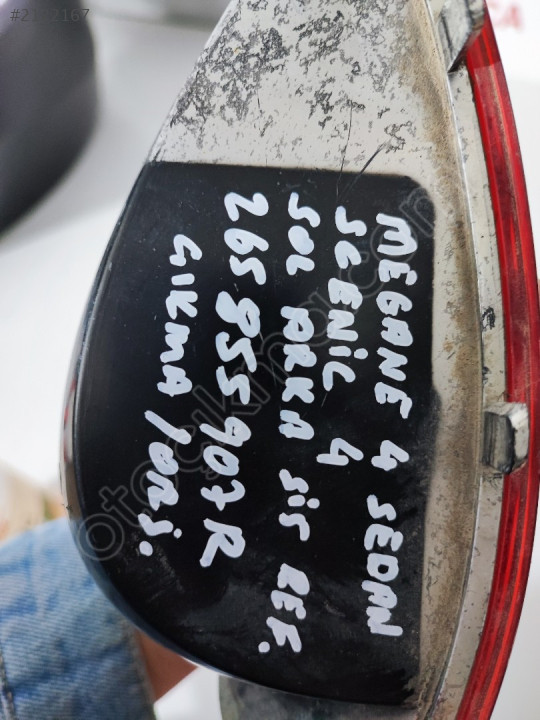 #21?2167
MEGANE 4 SEDAN
SCENIC 4
SOL ARKA SiS REF.
265 855 907R
ÇIKMA ORJ.
otoçıkma.com